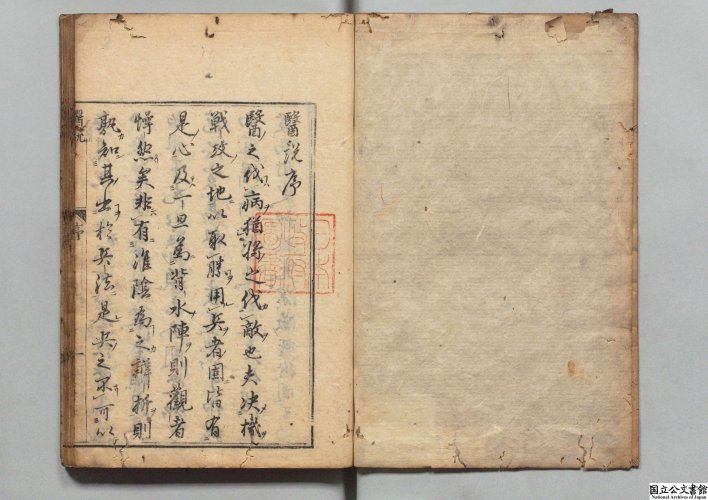 醫說序
醫之伐病猶將之伐敵也夫決機
戰攻之地以取勝用兵者固皆有
是心及一旦為背水陣則觀者
愕然矣非有淮陰為之辯折則
孰知其出於兵法是兵之不可以
醫說
序
国立公文書館
National Archives of Japan